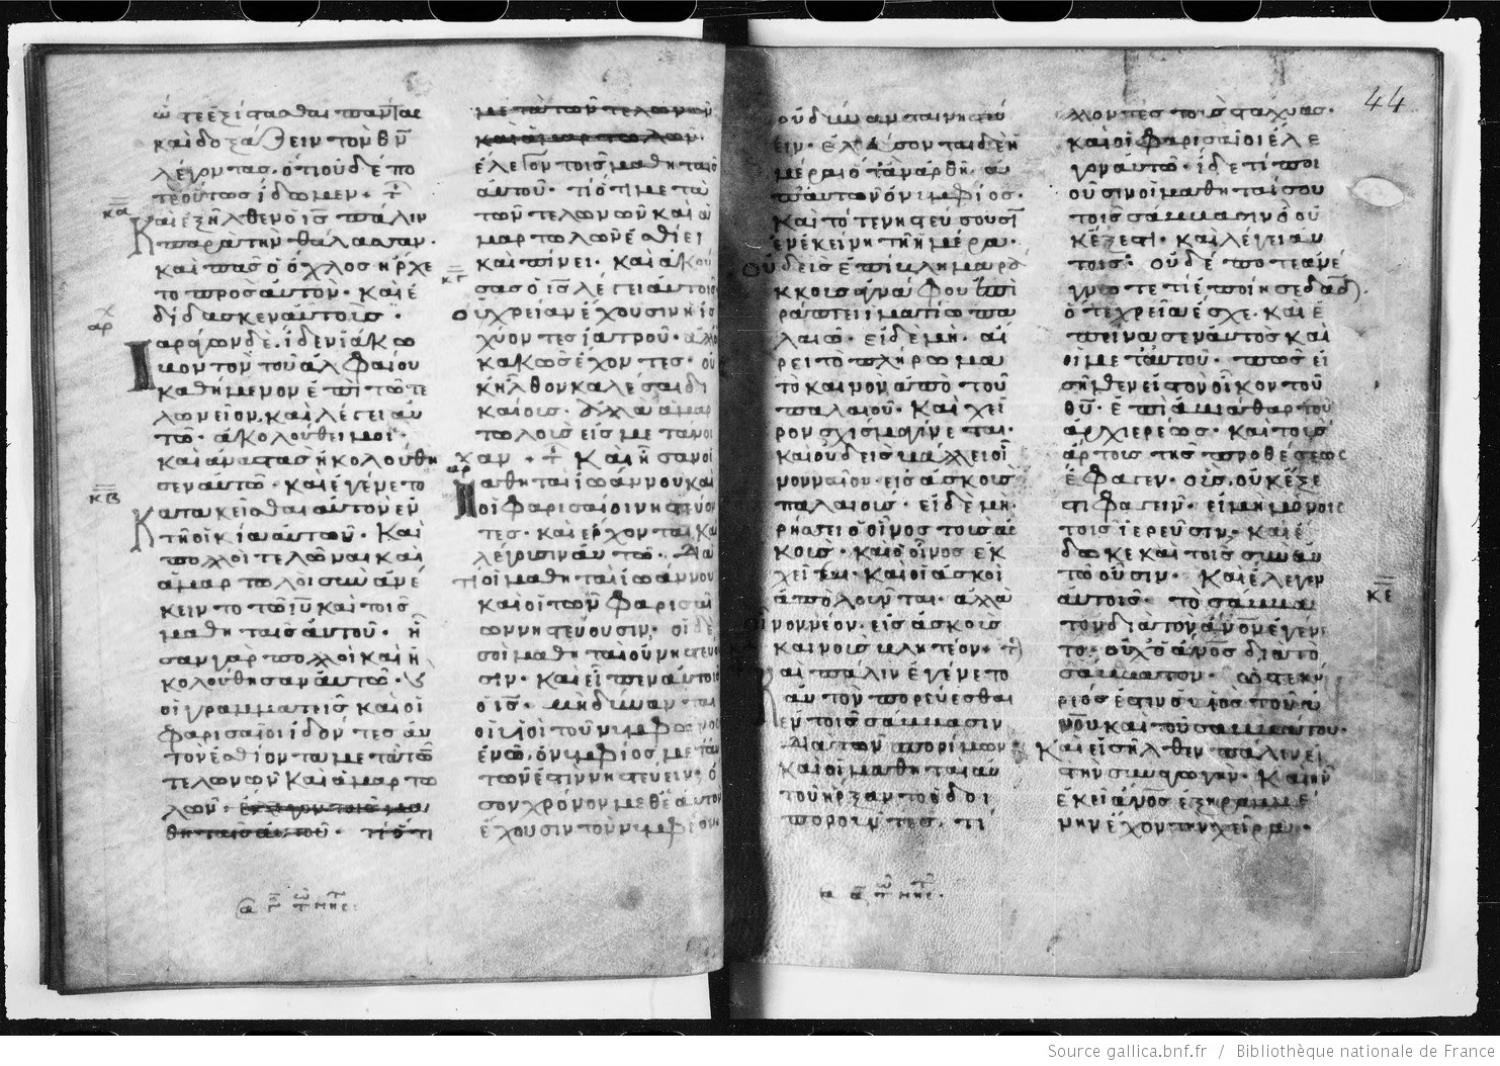 ὥστε ἐξίστασθαι πάντας
καὶ δοξάζειν τὸν θν
λέγοντας. ὅτι οὐδέπο
τε οὕτως ἴδωμεν.
κα
Καὶ ἐξῆλθεν ὁ ις πάλιν
παρὰ τὴν θάλασσαν.
καὶ πᾶσ ὁ ὄχλοσ ἤρχε
το προσ αυτὸν. καὶ ἐ
δίδασκεν αυτοισ.
αρ
παράγων δὲ. ἴδεν ἰάκω
μον τὸν τοῦ ἀλφαίου
καθήμενον ἐπὶ τῶ τε
λωνεῖον. καὶ λέγει αυ
τῶ. ἀκολούθει μοι.
καὶ ἀναστασ ἠκολούθη
κβ
σεν αυτῶ. καὶ ἐγένετο
κατακεῖσθαι αυτὸν ἐν
τῆ οἰκία αυτοῦ. Καὶ
πολλοὶ τελῶναι καὶ
ἁμαρτωλοὶ συνανέ
κειντο τῶ ιυ καὶ τοῖς
μαθηταῖσ αὐτοῦ. ἦ
σαν γὰρ πολλοὶ καὶ ἠ
κολούθησαν αυτῶ.
οἱ γραμματεῖσ καὶ οἱ
φαρισαῖοι ἰδόντεσ αυ
τὸν ἐσθίοντα μετὰ τῶ
τελωνῶν καὶ ἁμαρτω
λῶν. ἔλεγον τοῖσ μα
θηταῖσ αυτοῦ. τί ὅτι
μετὰ τῶν τελωνῶν
καὶ ἁμαρτωλῶν.
ἔλεγον τοῖς μαθηταῖσ
αυτοῦ. τί ὅτι μετὰ
τῶν τελωνῶν καὶ ἁ
μαρτωλῶν ἐσθίει
καὶ πίνει. καὶ ἀκού
κγ
σασ ὁ ις λέγει αυτοῖσ
οὐ χρείαν ἔχουσιν ἢ ἰσ
χύοντεσ ἰατροῦ. ἀλλ
κακῶσ ἔχοντεσ. οὐ
κ ἦλθον καλέσαι δι
καίουσ. ἀλλὰ ἁμαρ
τωλοὺσ εἰσ μετάνοι
αν Καὶ ἦσαν οἱ
αρ
μαθηταὶ ἰωάννου καὶ
οἱ φαρισαῖοι νηστεύον
τεσ. καὶ ἔρχονται καὶ
λέγουσιν αυτῶ. Διὰ
τί οἱ μαθηταὶ ἰωάννου
καὶ οἱ τῶν φαρισαί
ων νηστεύουσιν. οἱ δὲ
σοὶ μαθηταὶ οὐ νηστεύου
σιν. καὶ εἶπεν αυτοῖσ
ὁ ισ. μὴ δύναν ται
οἱ υἱοὶ τοῦ νυμφῶνοσ
ἐν ὧ. ὁ νυμφίοσ μετ αυ
τῶν ἐστιν νηστεύειν. ὅ
σον χρόνον μεθ ἑαυτῶν
ἔχουσιν τὸν νυμφίον.
44
οὐ δύνανται νηστεύ
ειν. ἐλεύσονται δὲ ἡ
μέραι ὅταν ἀρθῆ απ
αυτῶν ὁ νυμφίος.
Καὶ τότε νηστεύσουσῖ
ἐν ἐκείνη τῆ ἡμέρα.
Οὐδεὶσ ἐπίβλημα ρά
κκουσ ἀγνάφου ἐπι
ράπτει ἱματίω πα
λαιῶ. εἰ δὲ μὴ. αἴ
ρει τὸ πλήρωμα
τὸ καινὸν ἀπὸ τοῦ
παλαιοῦ. Καὶ χεῖ
ρον σχίσμα γίνεται.
Καὶ οὐδεὶσ βάλλει οἶ
νον νέον. εἰσ ἀσκοὺσ
παλαιούσ. εἰ δὲ μὴ.
ρήσσει ὁ οἶνοσ τοὺσ ἀσ
κούσ. καὶ ὁ οἶνοσ ἐκ
χεῖται. Καὶ οἱ ἀσκοὶ
ἀπολοῦνται. ἀλλὰ
οἶνον νέον. εἰσ ἀσκοὺσ
καινοὺσ βλητέον.
Καὶ πάλιν ἐγένετο
αυτὸν πορεύεσθαι
ἐν τοῖσ σάββασιν
Διὰ τῶν σπορίμων.
Καὶ οἱ μαθηταὶ αυ
τοῦ ἤρξαντο ὁδοι
πορουντες. τί
λλοντες τοὺσ στάχυασ.
καὶ οἱ φαρισαῖοι ἔλε
γον αυτῶ. ἴδε τί ποι
οῦσιν οἱ μαθηταί σου
τοῖσ σάββασιν ὃ οὐ
κ ἔξεστι. καὶ λέγει αυ
τοῖσ. οὐδέποτε ἀνέ
γνωτε τί ἐποίησε δαδ.
ὅτε χρείαν ἔσχε. καὶ ἐ
πείνασεν αυτὸσ καὶ
οἱ μετ αυτοῦ. πῶσ εἰ
σῆλθεν εἰσ τὸν οἶκον τοῦ
θυ. ἐπὶ ἀβιάθαρ τοῦ
ἀρχιερέωσ. καὶ τοὺσ
ἄρτουσ τῆσ προθέσεωσ
ἔφαγεν. οὓσ. οὐκ ἔξε
στι φαγεῖν. εἰ μὴ μόνοισ
τοῖσ ἱερεῦσιν. καὶ ἔ
δωκε καὶ τοῖσ σὺν αυ
τῶ οὖσιν. Καὶ ἔλεγεν
κε
αυτοῖσ. τὸ σάββα
τον διὰ τὸν ανον ἐγένε
το. οὐχ ὁ ανοσ διὰ τὸ
σάββατον. ὥστε κύ
ριόσ ἐστιν ὁ υἱὸσ τοῦ α
νου καὶ τοῦ σαββάτου.
Καὶ εἰσῆλθεν πάλιν εἰσ
τὴν συναγωγήν. Καὶ ἦν
ἐκεῖ ανοσ ἐξηραμμέ
νην ἔχων τὴν χεῖρα.